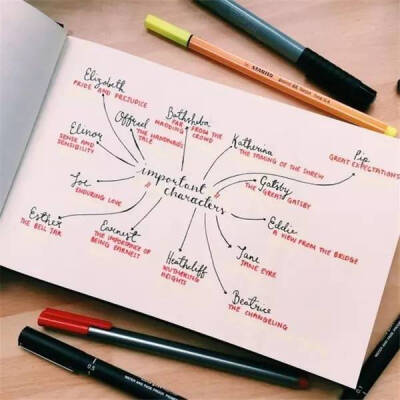 Elizabeth
PRIDE AND PREJUDICE
Offred
THE HANDMAID'S
TALE
Bathsheba
FAR FROM THE
MADDING CROWD
Katherina
THE TAMING OF THE SHREW
Pip
GREAT EXPECTATIONS
Elinor
SENSE AND
SENSIBILITY
Gatsby
THE GREAT GATSBY
important
characters
Joe
ENDURING LOVE
Eddie
A VIEW FROM THE BRIDGE
Esther
THE BELL JAR
Earnest
THE IMPORTANCE OF
BEING EARNEST
Jane
JANE EYRE
Heathcliff
WUTHERING
HEIGHTS
Beatrice
THE CHANGELING
STABILO
0.5